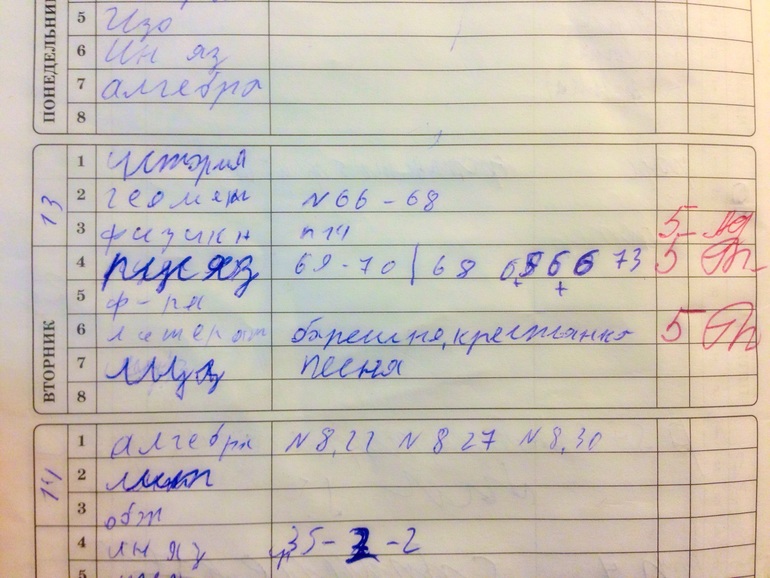 ПОНЕДЕЛЬНИК
5 Изо
6 Ин яз
7 алгебра
8
13
ВТОРНИК
1 история
2 геомет N 66 - 68
3 физики п14 5-
4 рус яз 69-70 | 68 73 5
5 ф-ра
6 литерат барешня, крестьянка 5
7 муз песня
8
14
1 алгебра N 8,22 N 8 27 N 8,30
2 лит
3 обж
4 ин яз 35- -2
5